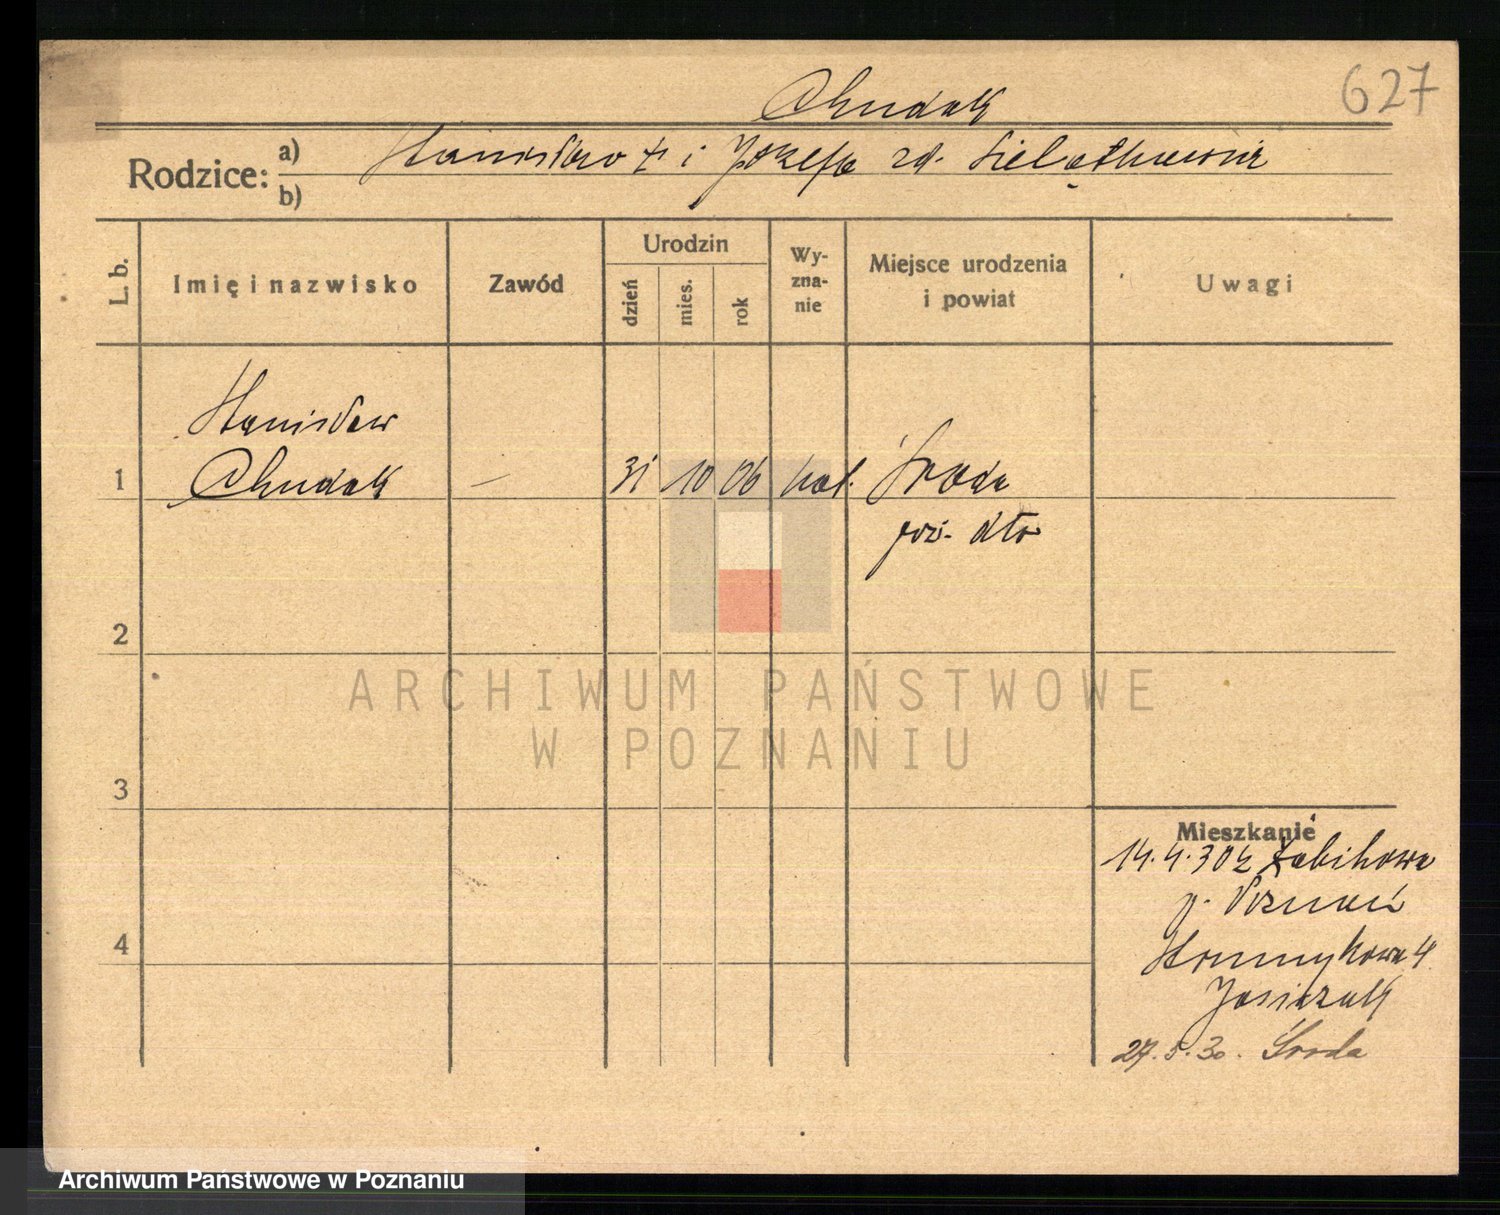 627
Chudak
Rodzice: a) Stanisław + i Józefa zd.
b)
L. b.
Imię i nazwisko
Zawód
Urodzin
dzień
mies.
rok
Wy-
zna-
nie
Miejsce urodzenia
i powiat
Uwagi
Stanisław
1 Chudak — 31 10 06 kat. Środa
pow. dto
2
3
4
Mieszkanie
14.4.30 z Żabikowa
p. Poznań
4
Jasiczak
27.5.30. Środa
ARCHIWUM PAŃSTWOWE
W POZNANIU
Archiwum Państwowe w Poznaniu